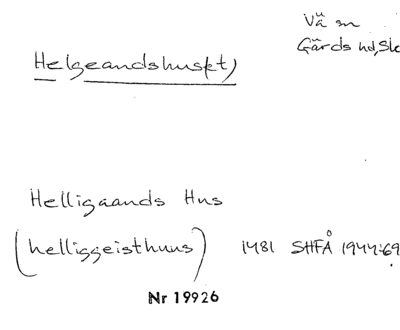 Vä sn
Gärds hd, Sk
Helgeandshus(et)
Helligaands Hus
(helliggeisthuus) 1481 SHFÅ 1944:69
Nr 19926